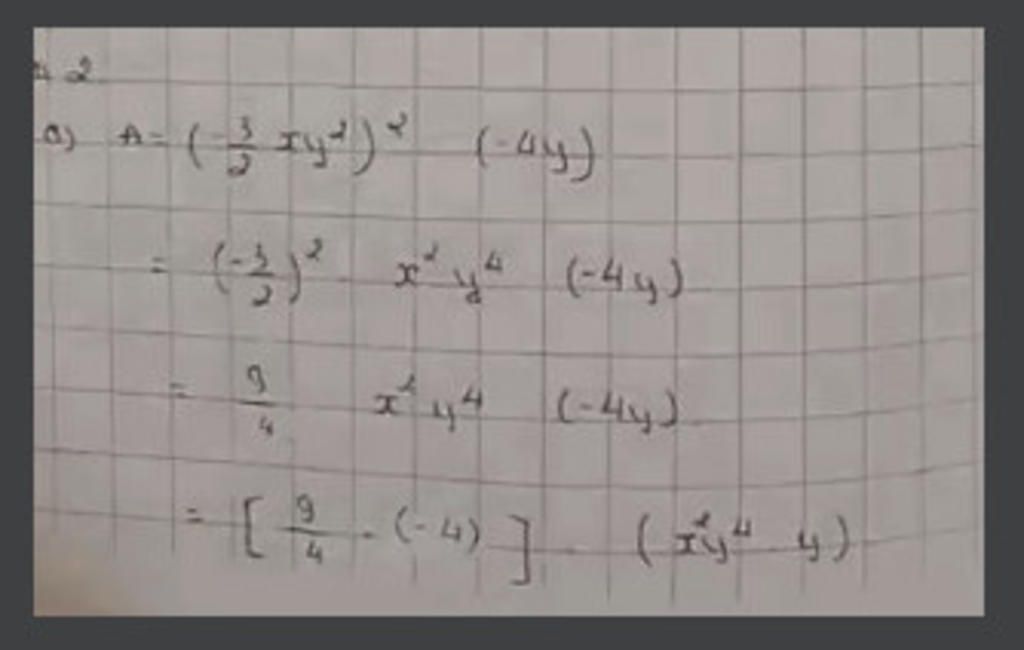 2
a) A = (-3/2 xy²)² (-4y)
= (-3/2)² x² y⁴ (-4y)
= 9/4 x² y⁴ (-4y)
= [9/4 · (-4)] · (x²y⁴ y)